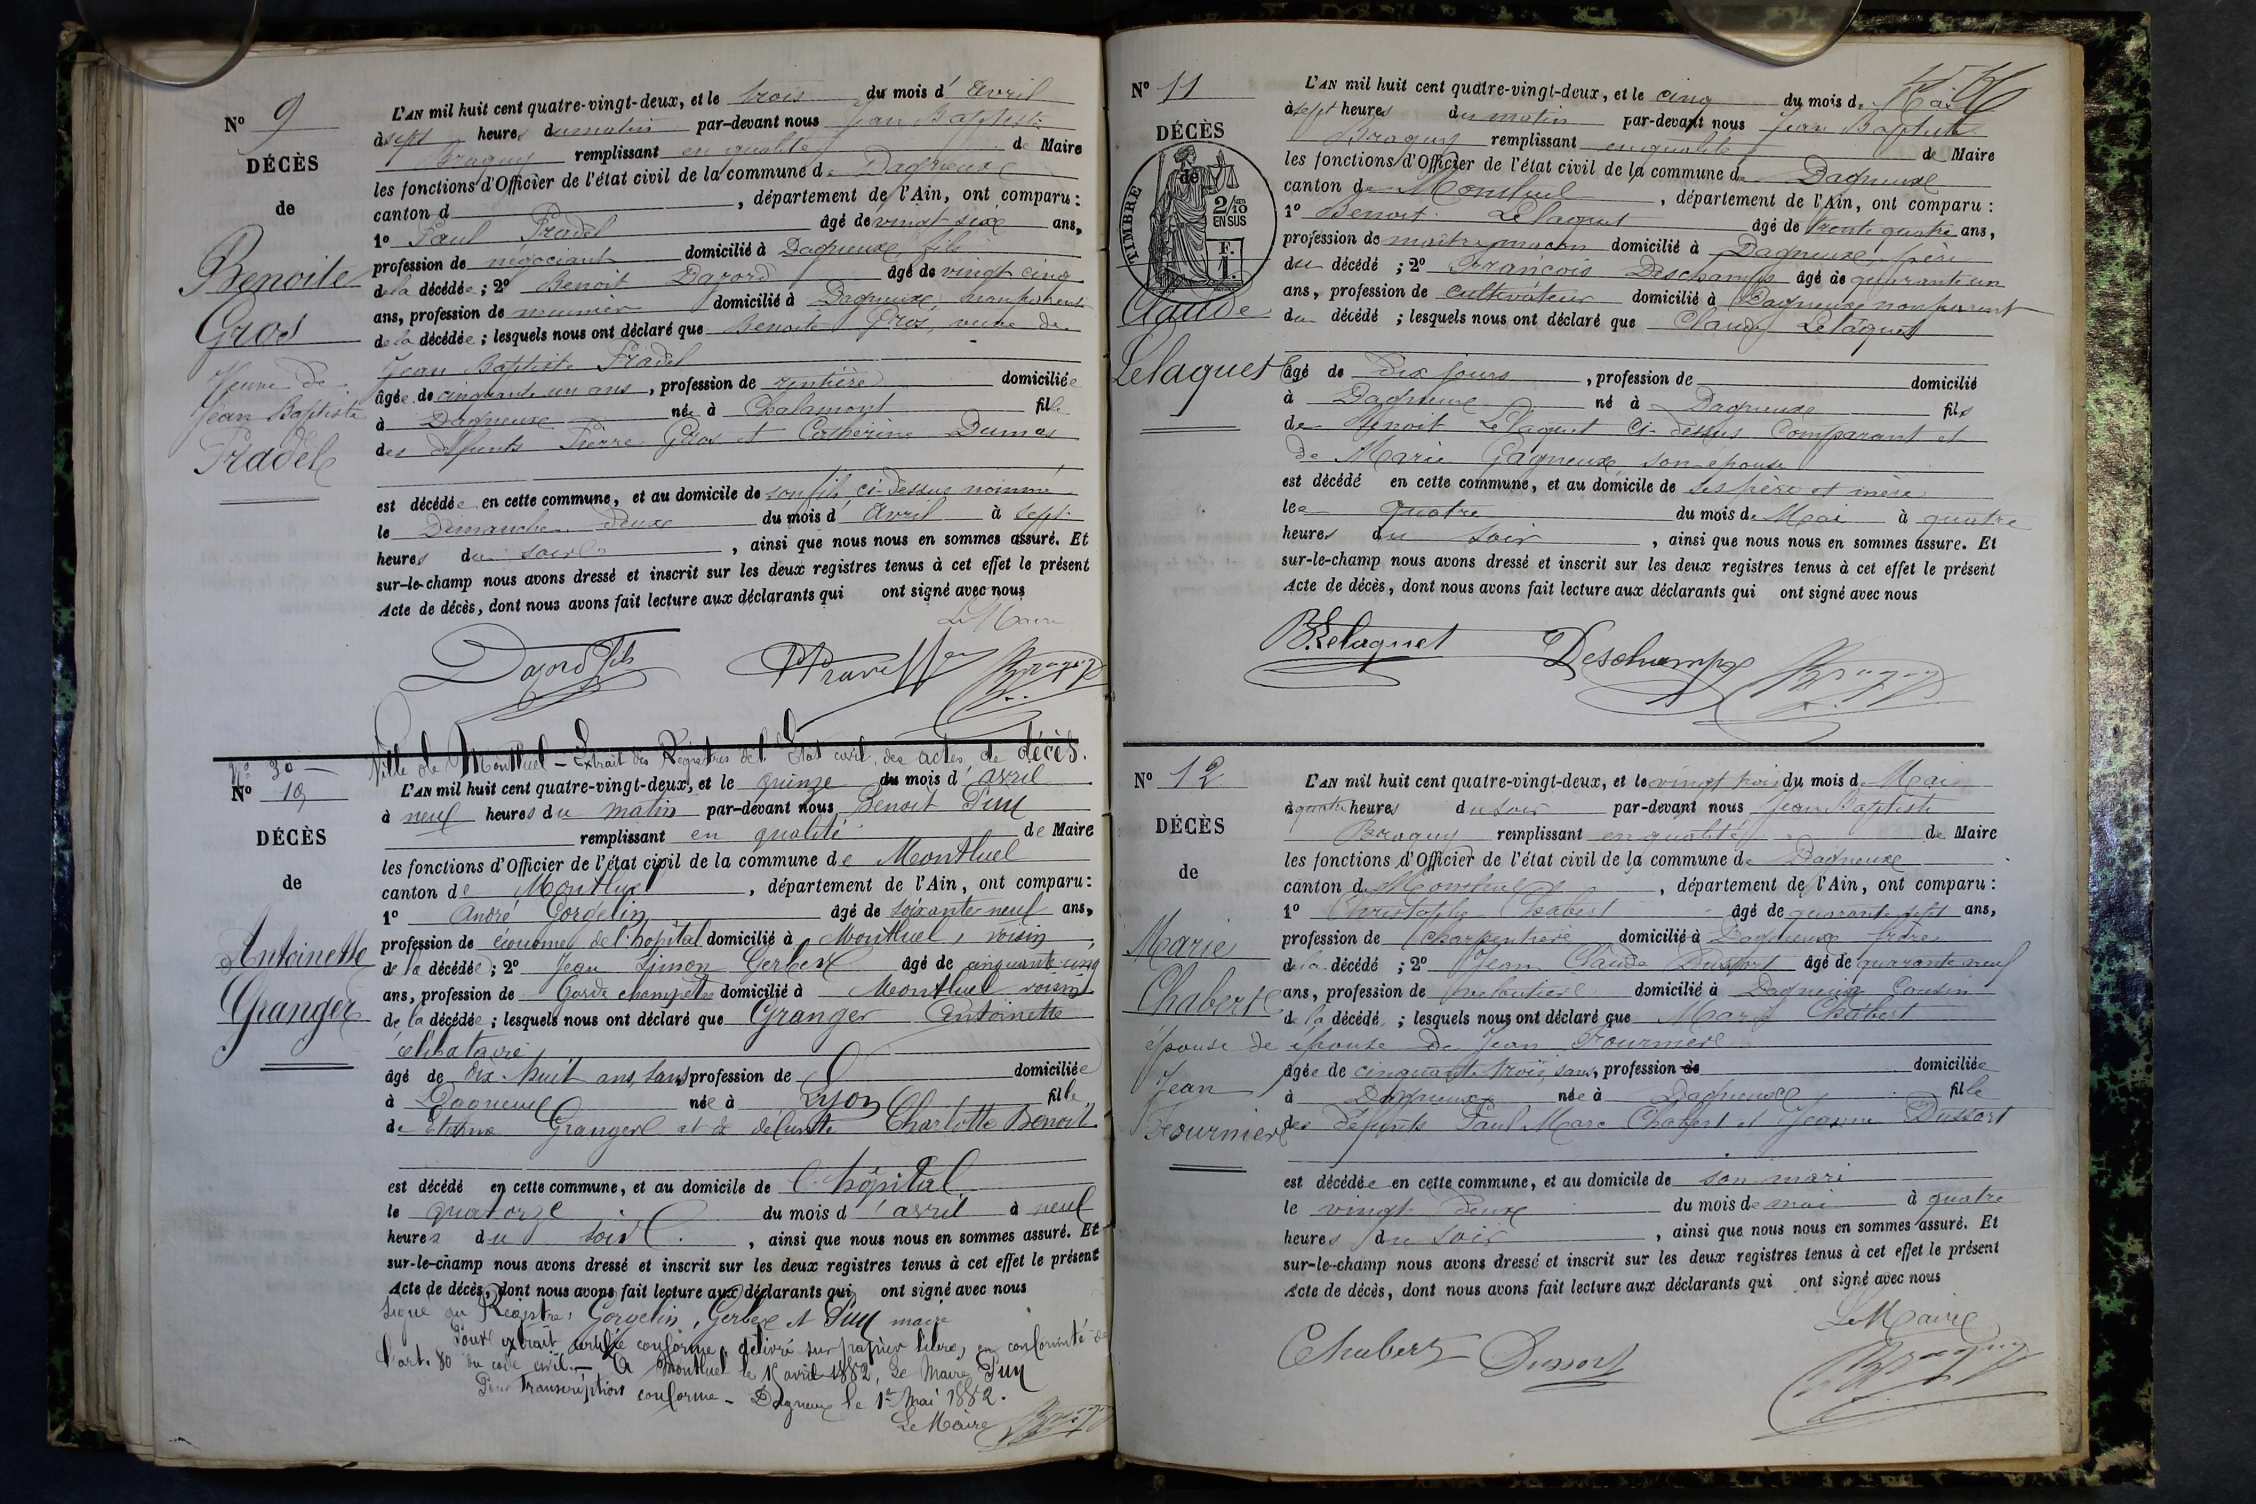 Nº 9
DÉCÈS
de
Benoite
Gros
Veuve de
Jean Baptiste
Pradel
L'AN mil huit cent quatre-vingt-deux, et le trois du mois d'Avril
à sept heures du matin par-devant nous Jean Baptiste
Braguy remplissant en qualité de Maire
les fonctions d'Officier de l'état civil de la commune de Dagneux
canton d , département de l'Ain, ont comparu :
1º Paul Pradel âgé de vingt six ans,
profession de négociant domicilié à Dagneux, fils
de la décédée ; 2º Benoit Dagord âgé de vingt cinq
ans, profession de meunier domicilié à Dagneux, non parent
de la décédée ; lesquels nous ont déclaré que Benoite Gros, veuve de
Jean Baptiste Pradel
âgée de cinquante un ans, profession de rentière domiciliée
à Dagneux née à Chalamont fille
des défunts Pierre Gros et Catherine Dumas
est décédée en cette commune, et au domicile de son fils ci-dessus nommé
le Dimanche deux du mois d'Avril à sept
heures du soir , ainsi que nous nous en sommes assuré. Et
sur-le-champ nous avons dressé et inscrit sur les deux registres tenus à cet effet le présent
Acte de décès, dont nous avons fait lecture aux déclarants qui ont signé avec nous
Le Maire
Dagord fils
Braguy
Ville de Montluel - Extrait des Registres de l'État civil, des actes de décès.
Nº 30
Nº 10
DÉCÈS
de
Antoinette
Granger
L'AN mil huit cent quatre-vingt-deux, et le quinze du mois d'avril
à neuf heures du matin par-devant nous Benoit
remplissant en qualité de Maire
les fonctions d'Officier de l'état civil de la commune de Montluel
canton de Montluel , département de l'Ain, ont comparu :
1º André Gorgelin âgé de soixante neuf ans,
profession de économe de l'hôpital domicilié à Montluel, voisin
de la décédée ; 2º Jean Simon Gerbex âgé de cinquante cinq
ans, profession de Garde champetre domicilié à Montluel voisin
de la décédée ; lesquels nous ont déclaré que Granger Antoinette
célibataire
âgé de dix-huit ans, sans profession de domiciliée
à Dagneux née à Lyon fille
de Etienne Granger et de défunte Charlotte Benoit
est décédé en cette commune, et au domicile de l'hôpital
le quatorze du mois d'avril à neuf
heures du soir , ainsi que nous nous en sommes assuré. Et
sur-le-champ nous avons dressé et inscrit sur les deux registres tenus à cet effet le présent
Acte de décès, dont nous avons fait lecture aux déclarants qui ont signé avec nous
Signé au Registre, Gorgelin, Gerbex et maire
Pour extrait certifié conforme, délivré sur papier libre, en conformité de
l'art. 80 du code civil. - A Montluel le 15 avril 1882, Le Maire
Pour Transcription conforme - Dagneux le 1er Mai 1882.
Le Maire Braguy
Nº 11
DÉCÈS
de
TIMBRE
2/10 EN SUS
F. 1.
Claude
Lelaquet
L'AN mil huit cent quatre-vingt-deux, et le cinq du mois de Mai
à sept heures du matin par-devant nous Jean Baptiste
Braguy remplissant en qualité de Maire
les fonctions d'Officier de l'état civil de la commune de Dagneux
canton de Montluel , département de l'Ain, ont comparu :
1º Benoit Lelaquet âgé de trente quatre ans,
profession de maître maçon domicilié à Dagneux, père
du décédé ; 2º François Deschamps âgé de quarante un
ans, profession de cultivateur domicilié à Dagneux non parent
du décédé ; lesquels nous ont déclaré que Claude Lelaquet
âgé de Dix jours , profession de domicilié
à Dagneux né à Dagneux fils
de Benoit Lelaquet ci-dessus Comparant et
de Marie Gagneux son epouse
est décédé en cette commune, et au domicile de ses père et mère
le quatre du mois de Mai à quatre
heures du soir , ainsi que nous nous en sommes assuré. Et
sur-le-champ nous avons dressé et inscrit sur les deux registres tenus à cet effet le présent
Acte de décès, dont nous avons fait lecture aux déclarants qui ont signé avec nous
B. Lelaquet Deschamps Braguy
Nº 12
DÉCÈS
de
Marie
Chabert
épouse de
Jean
Fournier
L'AN mil huit cent quatre-vingt-deux, et le vingt trois du mois de Mai
à quatre heures du soir par-devant nous Jean Baptiste
Braguy remplissant en qualité de Maire
les fonctions d'Officier de l'état civil de la commune de Dagneux
canton de Montluel , département de l'Ain, ont comparu :
1º Christophe Chabert âgé de quarante sept ans,
profession de charpentier domicilié à Dagneux frère
de la décédé ; 2º Jean Claude Dussort âgé de quarante neuf
ans, profession de domicilié à Dagneux Cousin
de la décédé ; lesquels nous ont déclaré que Marie Chabert
épouse de Jean Fournier
âgée de cinquante trois, sans, profession de domiciliée
à Dagneux née à Dagneux fille
des défunts Paul Marc Chabert et Jeanne Dussort
est décédée en cette commune, et au domicile de son mari
le vingt deux du mois de mai à quatre
heures du soir , ainsi que nous nous en sommes assuré. Et
sur-le-champ nous avons dressé et inscrit sur les deux registres tenus à cet effet le présent
Acte de décès, dont nous avons fait lecture aux déclarants qui ont signé avec nous
Le Maire
Chabert Dussort Braguy